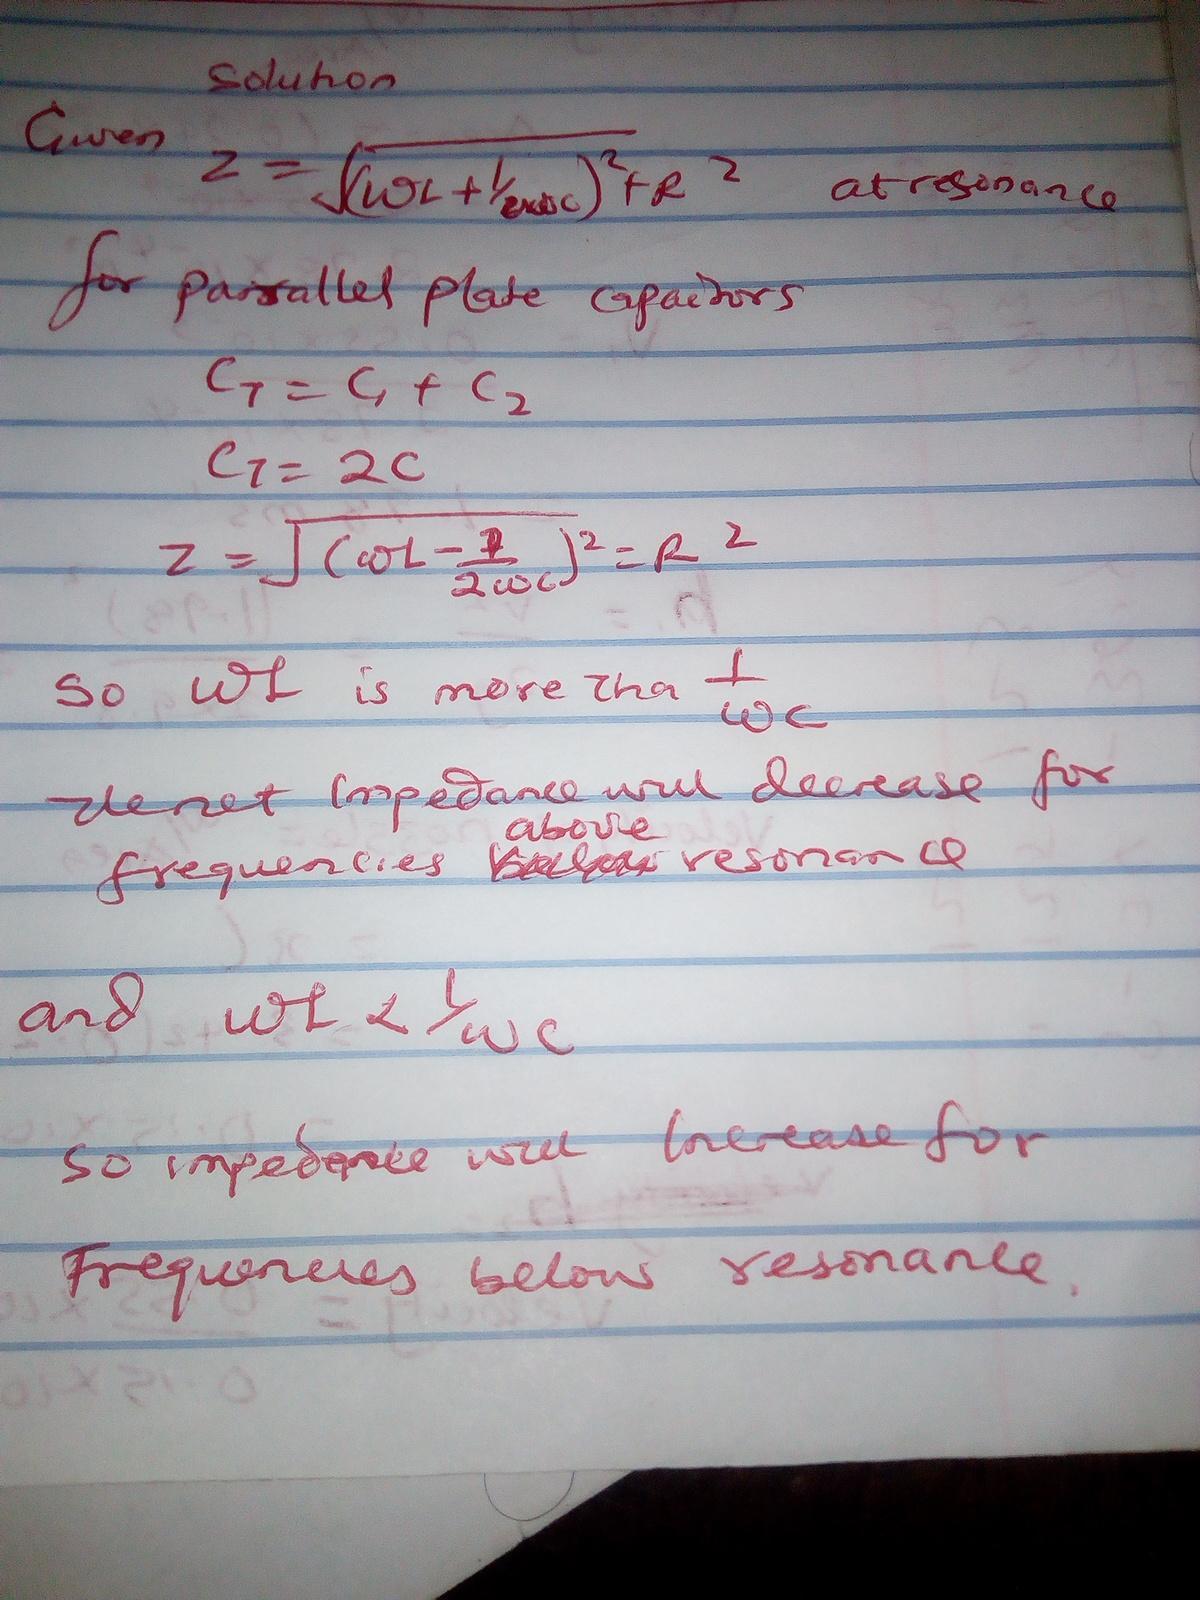 Solution
Given Z = √(WL + 1/2wc)² + R² at resonance
for parrallel plate capacitors
C_T = C₁ + C₂
C_T = 2C
Z = √(ωL - 1/2ωc)² = R²
So WL is more tha 1/ωc
net Impedance will decrease for
above
frequencies resonance
and WL < 1/WC
So impedance will Increase for
Frequencies below resonance.